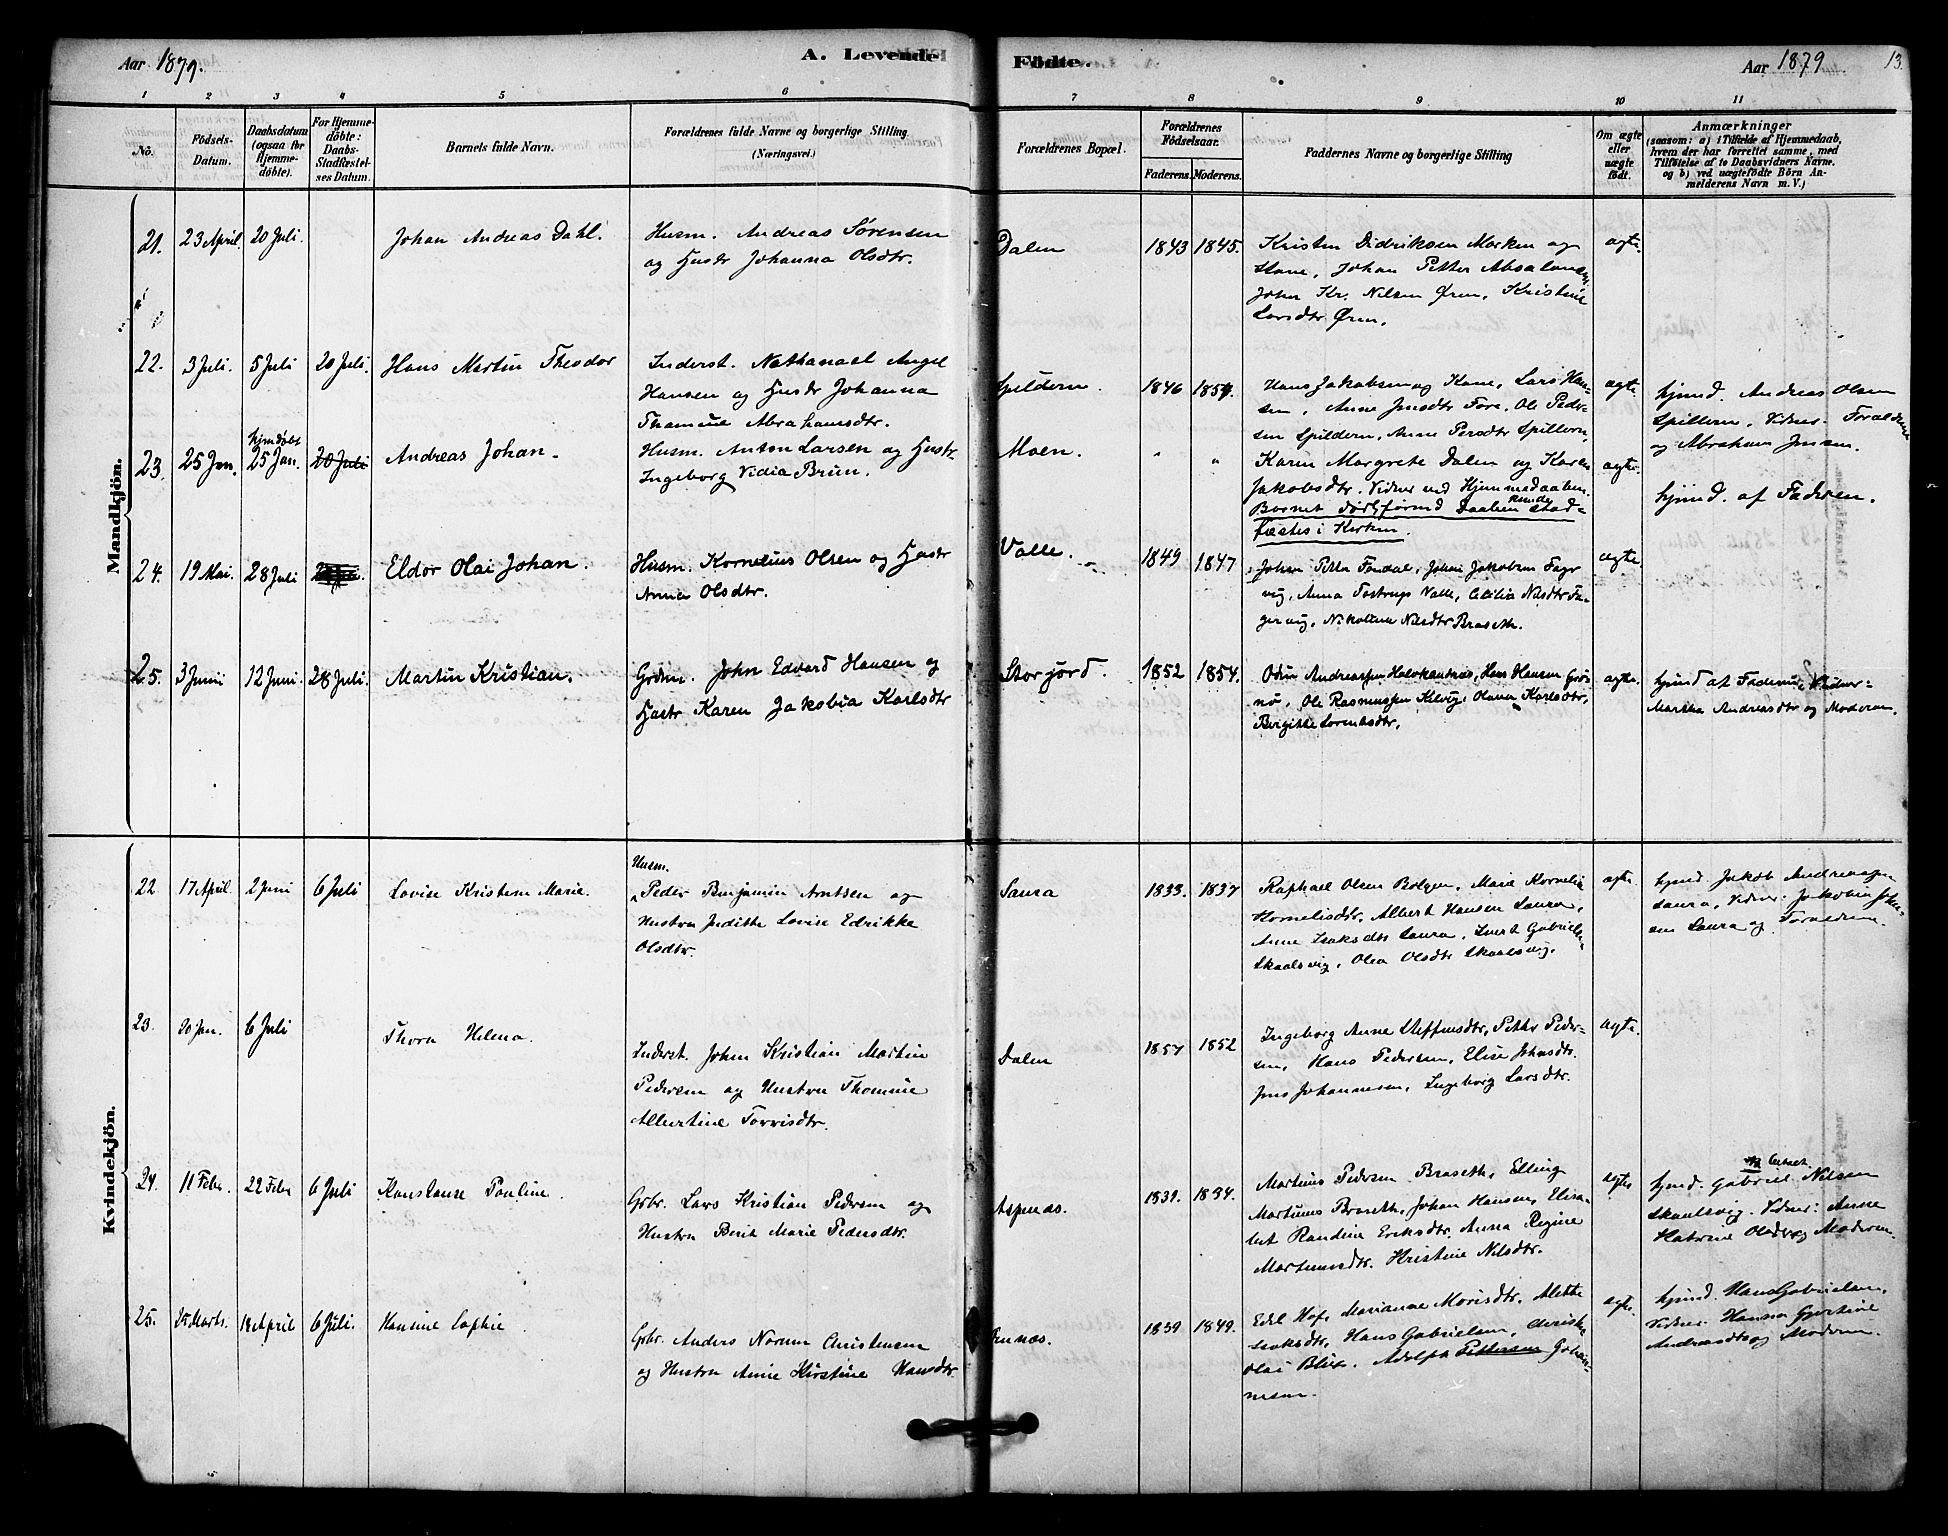 Aar 1879.
A. Levende
Födte.
Aar 1879
13
1 2 3 4 5 6 7 8 9 10 11
No.
Födsels-
Datum.
Daabsdatum
(ogsaa for
Hjemme-
döbte).
For Hjemme-
döbte:
Daabs-
Stadfæstel-
ses Datum.
Barnets fulde Navn.
Forældrenes fulde Navne og borgerlige Stilling
(Næringsvei.)
Forældrenes Bopæl.
Forældrenes
Födselsaar.
Faderens. Moderens.
Faddernes Navne og borgerlige Stilling
Om ægte
eller
uægte
födt.
Anmærkninger
(saasom: a) i Tilfælde af Hjemmedaab,
hvem der har forrettet samme, med
Tilföielse af to Daabsvidners Navne.
og b) ved uægtefödte Börn An-
melderens Navn m. V.)
Mandkjön.
21. 23 April. 20 Juli. Johan Andreas Dahl.
Husm. Andreas Sørensen
og Hustr Johanna Olsdtr.
Dalen 1843 1845.
Kristen Didriksen Marken og
Kone, Johan Petter Absalonsen
John Kr. Nilsen Øren, Kristine
Larsdtr Øren.
ægte.
22. 3 Juli. 5 Juli 20 Juli. Hans Martin Theodor
Inderst. Nathanael Angel
Hansen og Hustr Johanna
Thamine Abrahamsdtr.
Spildern. 1846 1854.
Hans Jakobsen og Kone, Lars Han-
sen, Anne Jensdtr Fore, Ole Peder-
sen Spildern, Anne Persdtr Spildern,
ægte.
hjmd. Andreas Olsen
Spildern, Vidner: Forældrene
og Abraham Jensen.
23. 25 Jan. hjemdøbt
25 Jan. 20 Juli Andreas Johan.
Husm. Anton Larsen og Hustr.
Ingeborg Vidia Brun.
Moen. " "
Karen Margrete Dalen og Karen
Jakobsdtr. Vidner ved Hjemmedaaben.
Barnet døde førend Daaben kunde stad-
fæstes i Kirken.
ægte.
hjmd. af Faderen.
24. 19 Mai. 28 Juli Eldor Olai Johan.
Husm. Kornelius Olsen og Hustr
Anna Olsdtr.
Valle. 1849 1847
Johan Petter Fondal, Johan Jakobsen Fager
vig, Anna Tostrup Valle, Cecilia Nilsdtr Fa-
gervig, Nikoline Nilsdtr Braseth.
ægte.
25. 3 Juni 12 Juni. 28 Juli. Martin Kristian.
Grdm. John Edvard Hansen og
Hustr Karen Jakobia Karlsdtr
Storjord. 1852 1854.
Odin Andreassen Halvhandnes, Hans Hansen Grø-
nø, Ole Rasmussen Kilvig, Olava Karlsdtr,
Bergitte Lorentsdtr.
ægte.
hjmd af Faderen, Vidner:
Martha Andreasdtr og Moderen.
Kvindekjön.
22 17 April. 2 Juni 6 Juli Lovise Kristine Marie.
Husm.
Peder Benjamin Arntsen og
Hustru Judithe Lovise Edrikke
Olsdtr.
Saura 1833. 1837
Raphael Olsen Bolgen, Marie Kornelia
Kornelisdtr, Albert Hansen Saura,
Anne Isaksdtr Saura, Evert Gabrielsen
Skaalsvig, Olea Olsdtr Skaalsvig.
ægte.
hjmd. Jakob Andreassen
Saura, Vidner: Jakobine Jen-
sen Saura og Forældrene.
23. 20 Jan. 6 Juli Thora Helena.
Inderst. Johan Kristian Martin
Pedersen og Hustru Thomine
Albertine Torrisdtr.
Dalen 1857 1852
Ingeborg Anne Steffensdtr, Petter Peder-
sen, Hans Pedersen, Elise Johnsdtr.
Jens Johannesen, Ingeborg Larsdtr.
ægte.
24. 11 Febr. 22 Febr 6 Juli Konstanse Pauline.
Grbr. Lars Kristian Pedersen og
Hustru Berit Marie Pedersdtr.
Aspenæs. 1839. 1834.
Martinus Pedersen Braseth, Elling
Martinus Braseth, Johan Hansen, Elisa-
bet Randine Eriksdtr. Anna Regine
Martinusdtr. Kristine Nilsdtr.
ægte
hjmd. Gabriel Nilsen
Skaalsvig. Vidner: Anne
Katrine Olsdtr og Moderen.
25. 25 Marts. 14 April 6 Juli. Hansine Sophie
Grbr. Anders Norum Christensen
og Hustru Anne Kirstine Hansdtr.
Ennæs. 1839 1849.
Edel Hof, Marianne Morisdtr. Mette
Isaksdtr, Hans Gabrielsen,
Olai Blix. Adolph Pettersen Johan-
nesen.
ægte.
hjmd. Hans Gabrielsen,
Vidner Hanna Gjertine
Andreasdtr og Moderen.